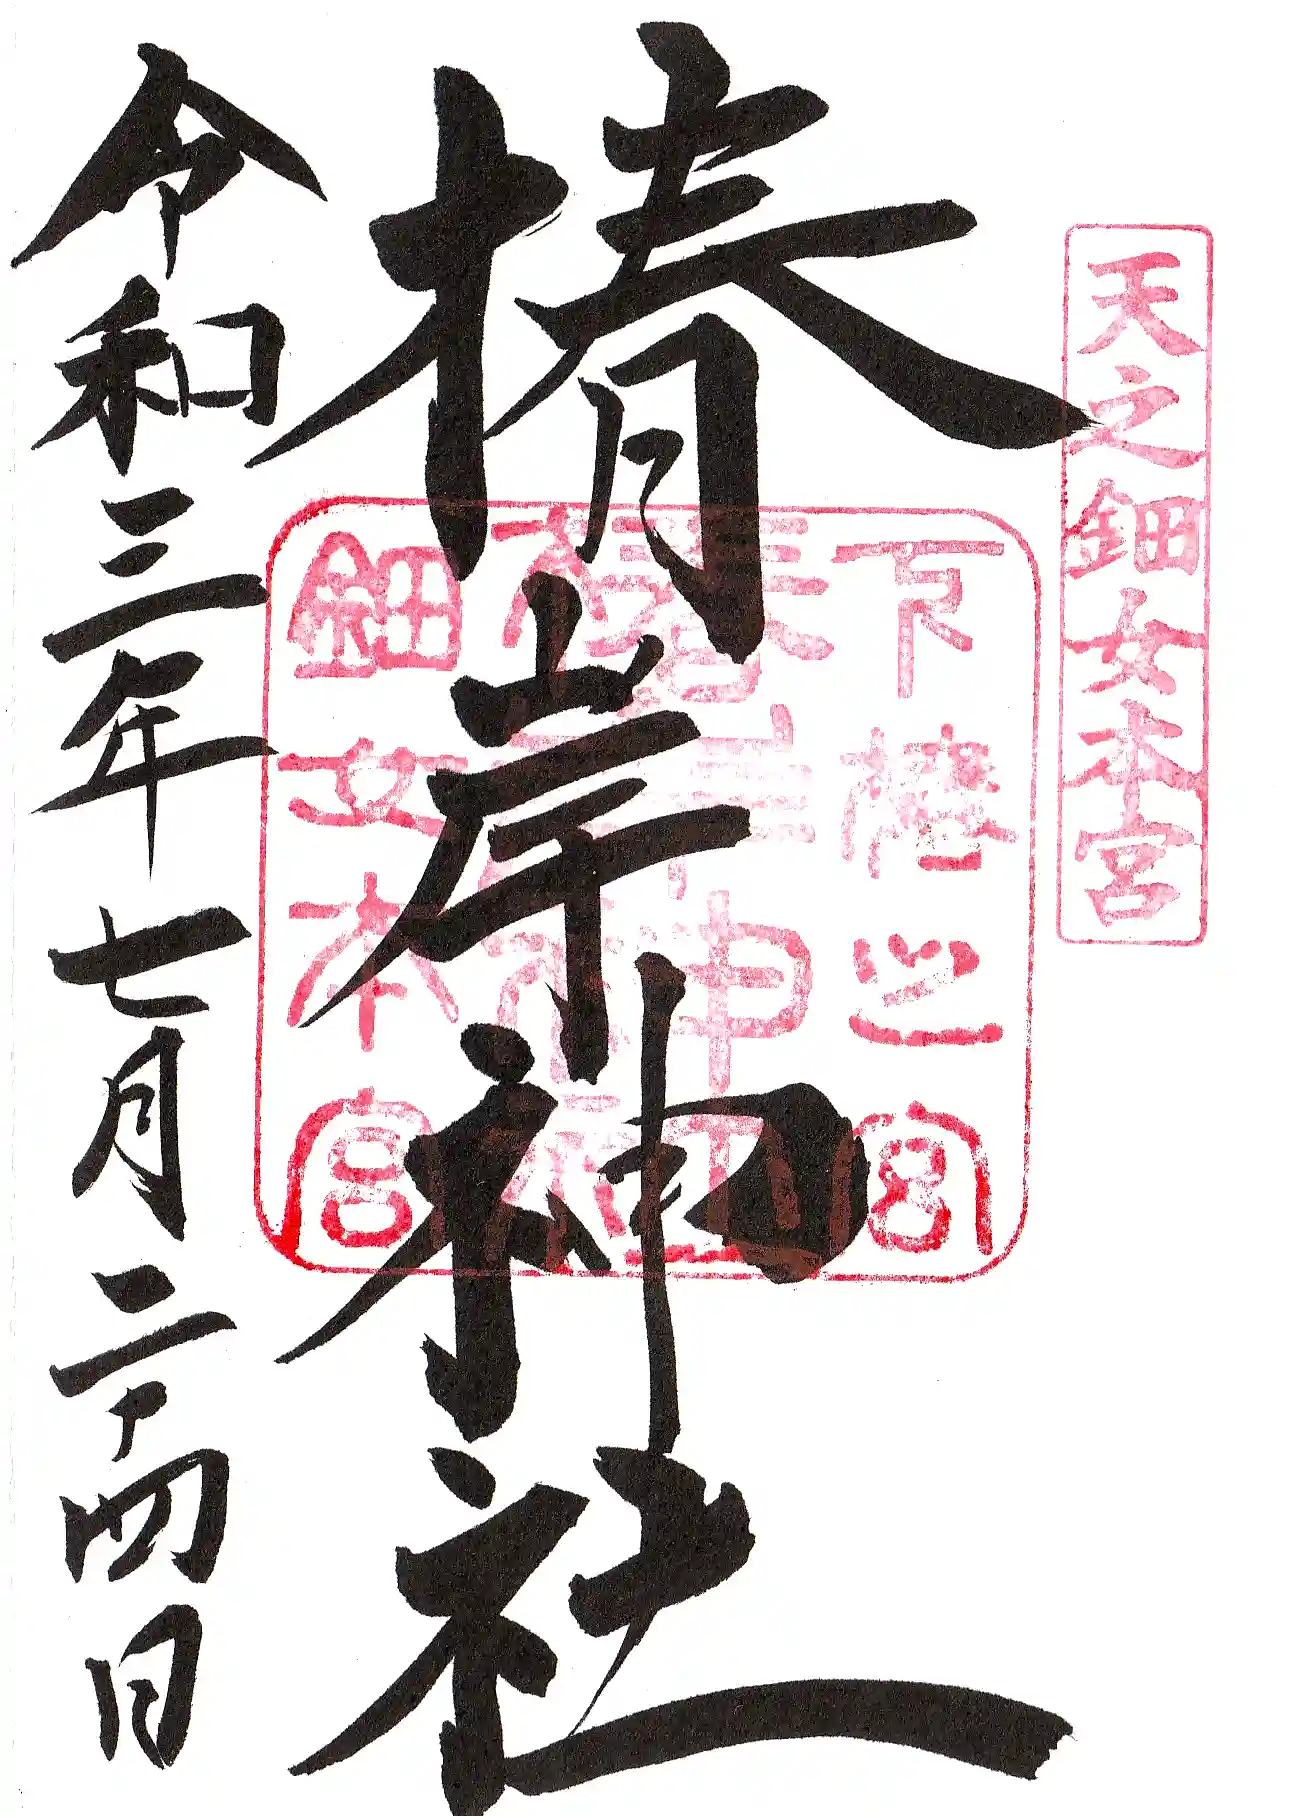 天之鈿女本宮
椿岸神社
下椿之宮
椿岸神社
鈿女本宮
令和三年七月二十四日